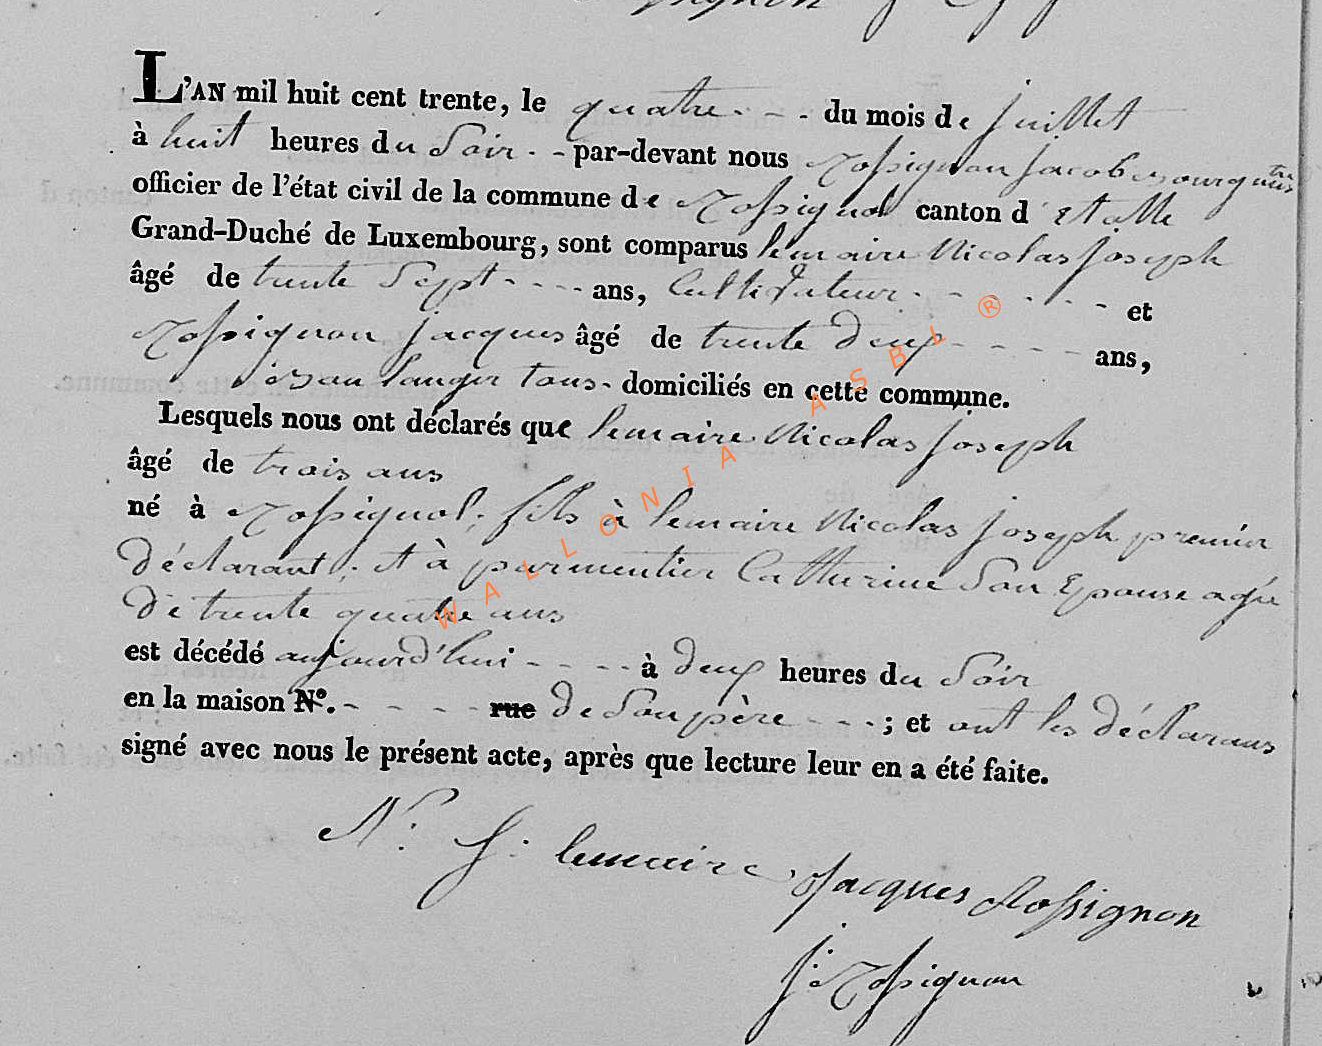 L'AN mil huit cent trente, le quatre - - - du mois de juillet
à huit heures du Soir - - par-devant nous Rossignon jacob Bourgmestre
officier de l'état civil de la commune de Rossignol canton d'Etalle
Grand-Duché de Luxembourg, sont comparus lemaire Nicolas joseph
âgé de trente Sept - - - - ans, Cultivateur - - - - - - et
Rossignon jacques âgé de trente deux - - - - ans,
tous - domiciliés en cette commune.
Lesquels nous ont déclarés que lemaire Nicolas joseph
âgé de trois ans
né à Rossignol; fils à lemaire Nicolas joseph premier
déclarant; et à parmentier Catherine Son Epouse agée
de trente quatre ans
est décédé aujourd'hui - - - - à deux heures du Soir
en la maison N°. - - - - rue de Son père - - - ; et ont les déclarans
signé avec nous le présent acte, après que lecture leur en a été faite.
N. J. lemaire
Jacques Rossignon
J. Rossignon
WALLONIA ASBL ®